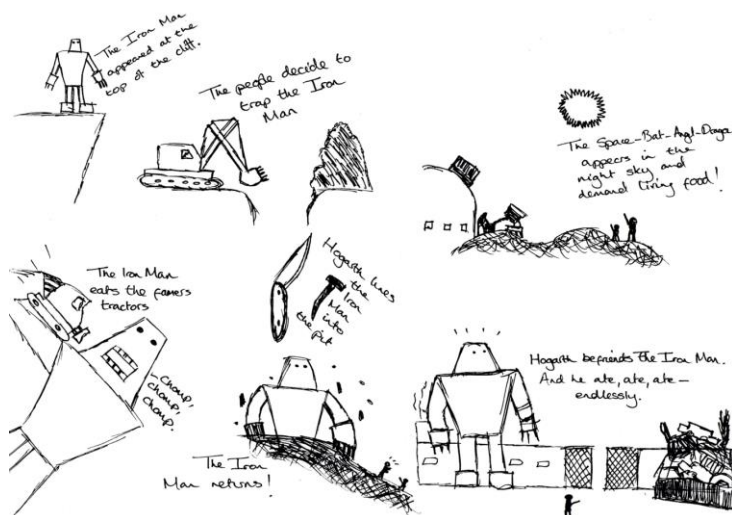 The Iron Man
appeared at the
top of the cliff.
The people decide to
trap the Iron
Man
The Space-Bat-Angl-Drago
appears in the
night sky and
demand living food!
The Iron Man
eats the famers
tractors
-chomp,
chomp,
chomp.
Hogarth lures
the
Iron
Man
into
the pit
The Iron
Man returns!
Hogarth befriends the Iron Man.
And he ate, ate, ate-
endlessly.